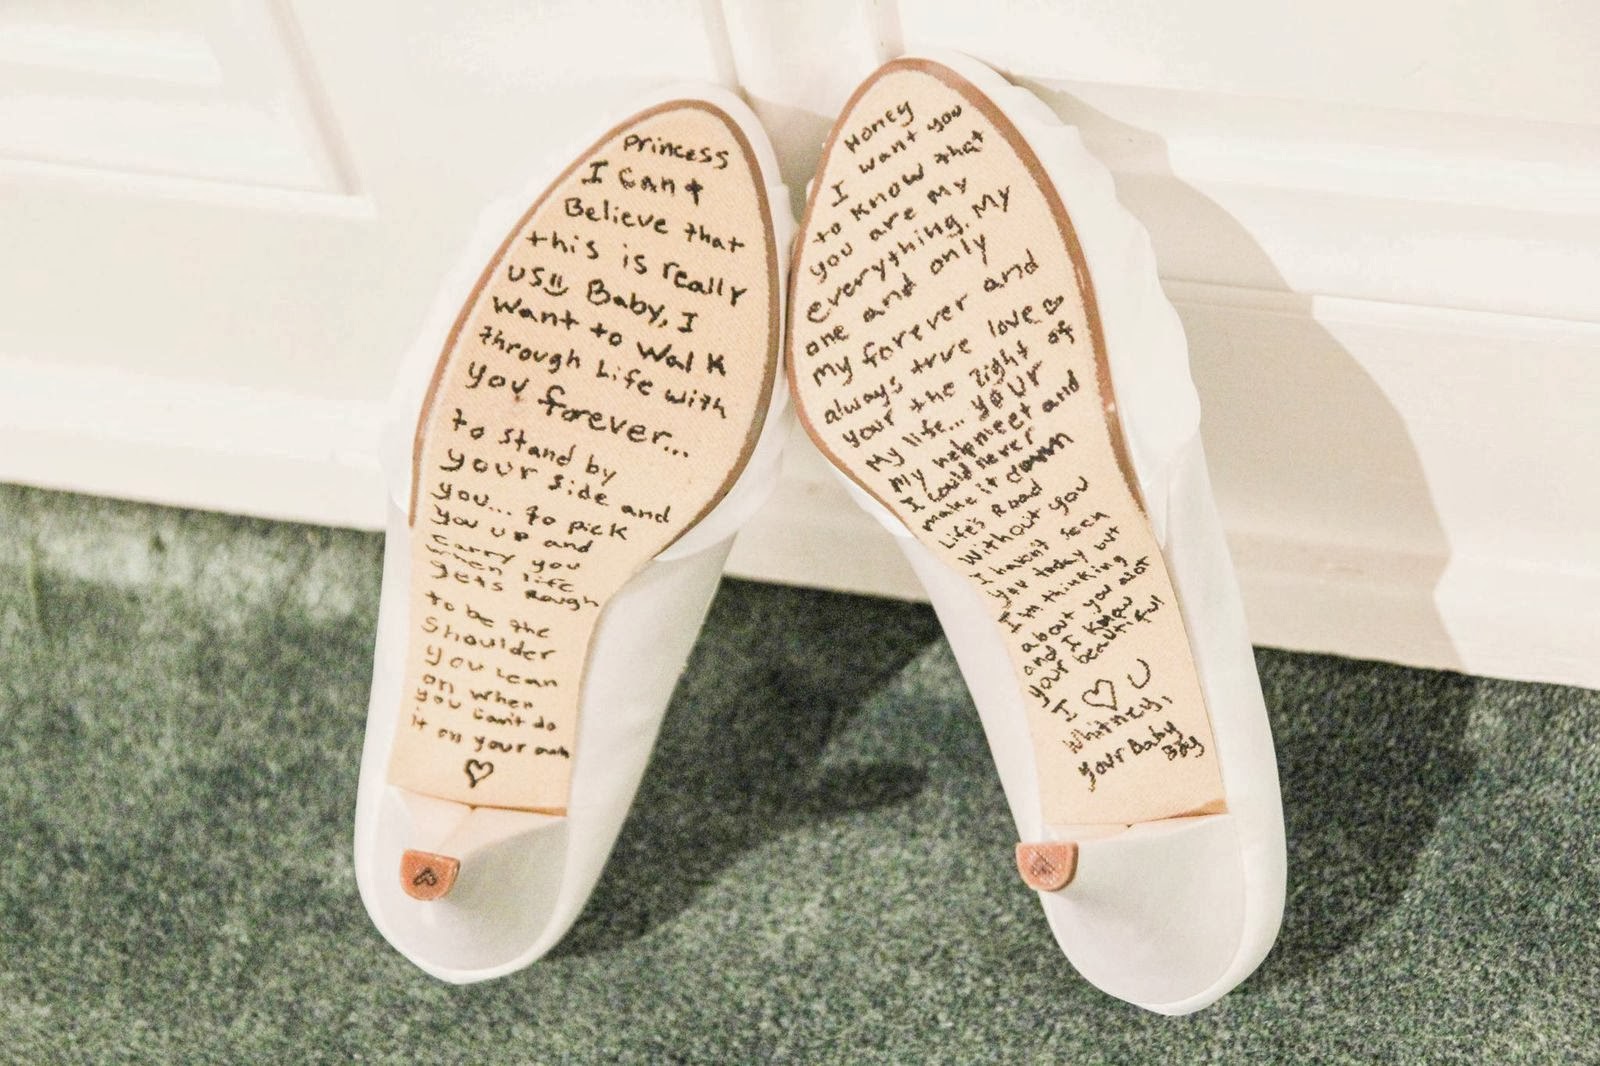 Princess
I can't
Believe that
this is really
us Baby, I
want to walk
through Life with
you forever...
to stand by
your side and
you... to pick
you up and
carry you
when life
gets Rough
to be the
shoulder
you lean
on when
you can't do
it on your own
♡
Honey
I want you
to know that
you are my
everything. My
one and only
My forever and
always true love
your the light of
My life... your
My helpmeet and
I could never
make it down
Life's Road
Without you
I haven't seen
you today but
I'm thinking
about you alot
and I know
your beautiful
I ♡ U
Whitney,
your Baby
Boy